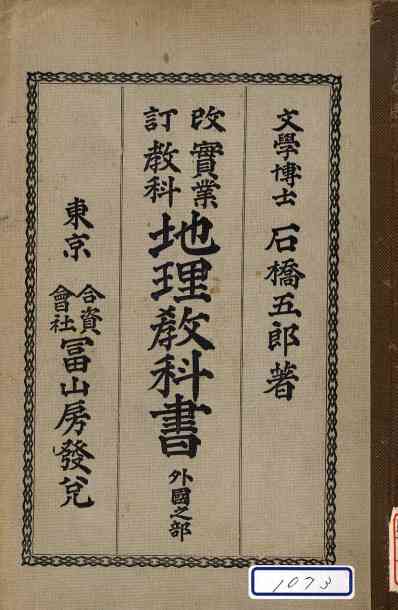 文學博士 石橋五郎著
改訂
實業教科
地理教科書 外國之部
東京
合資會社
冨山房發兌
1073